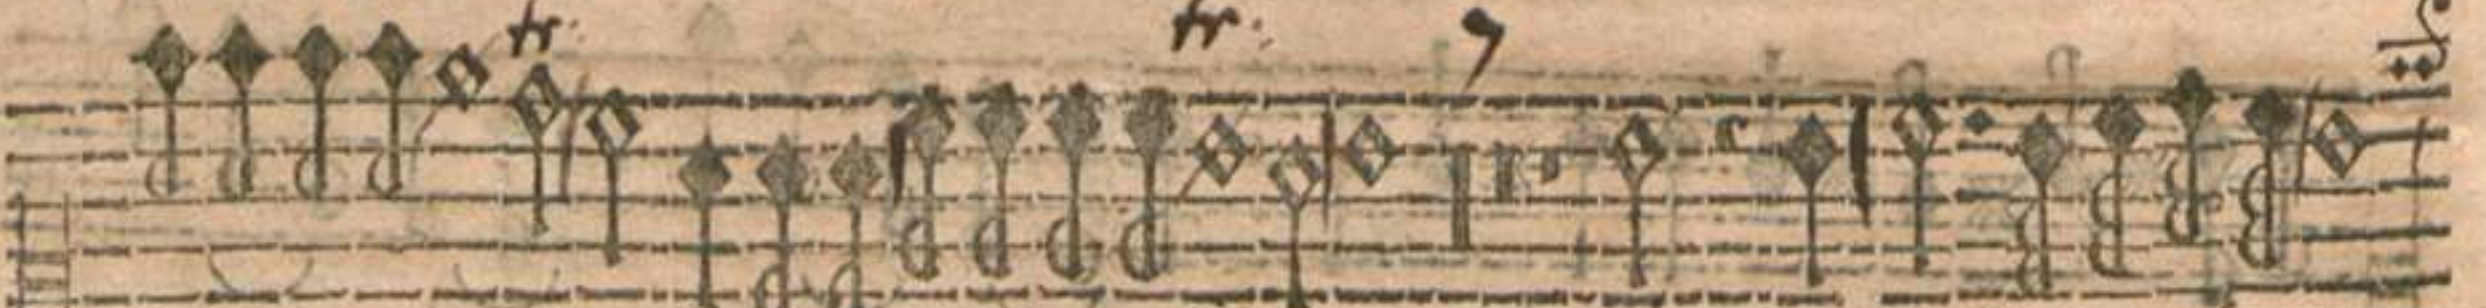 tr: tr: 7